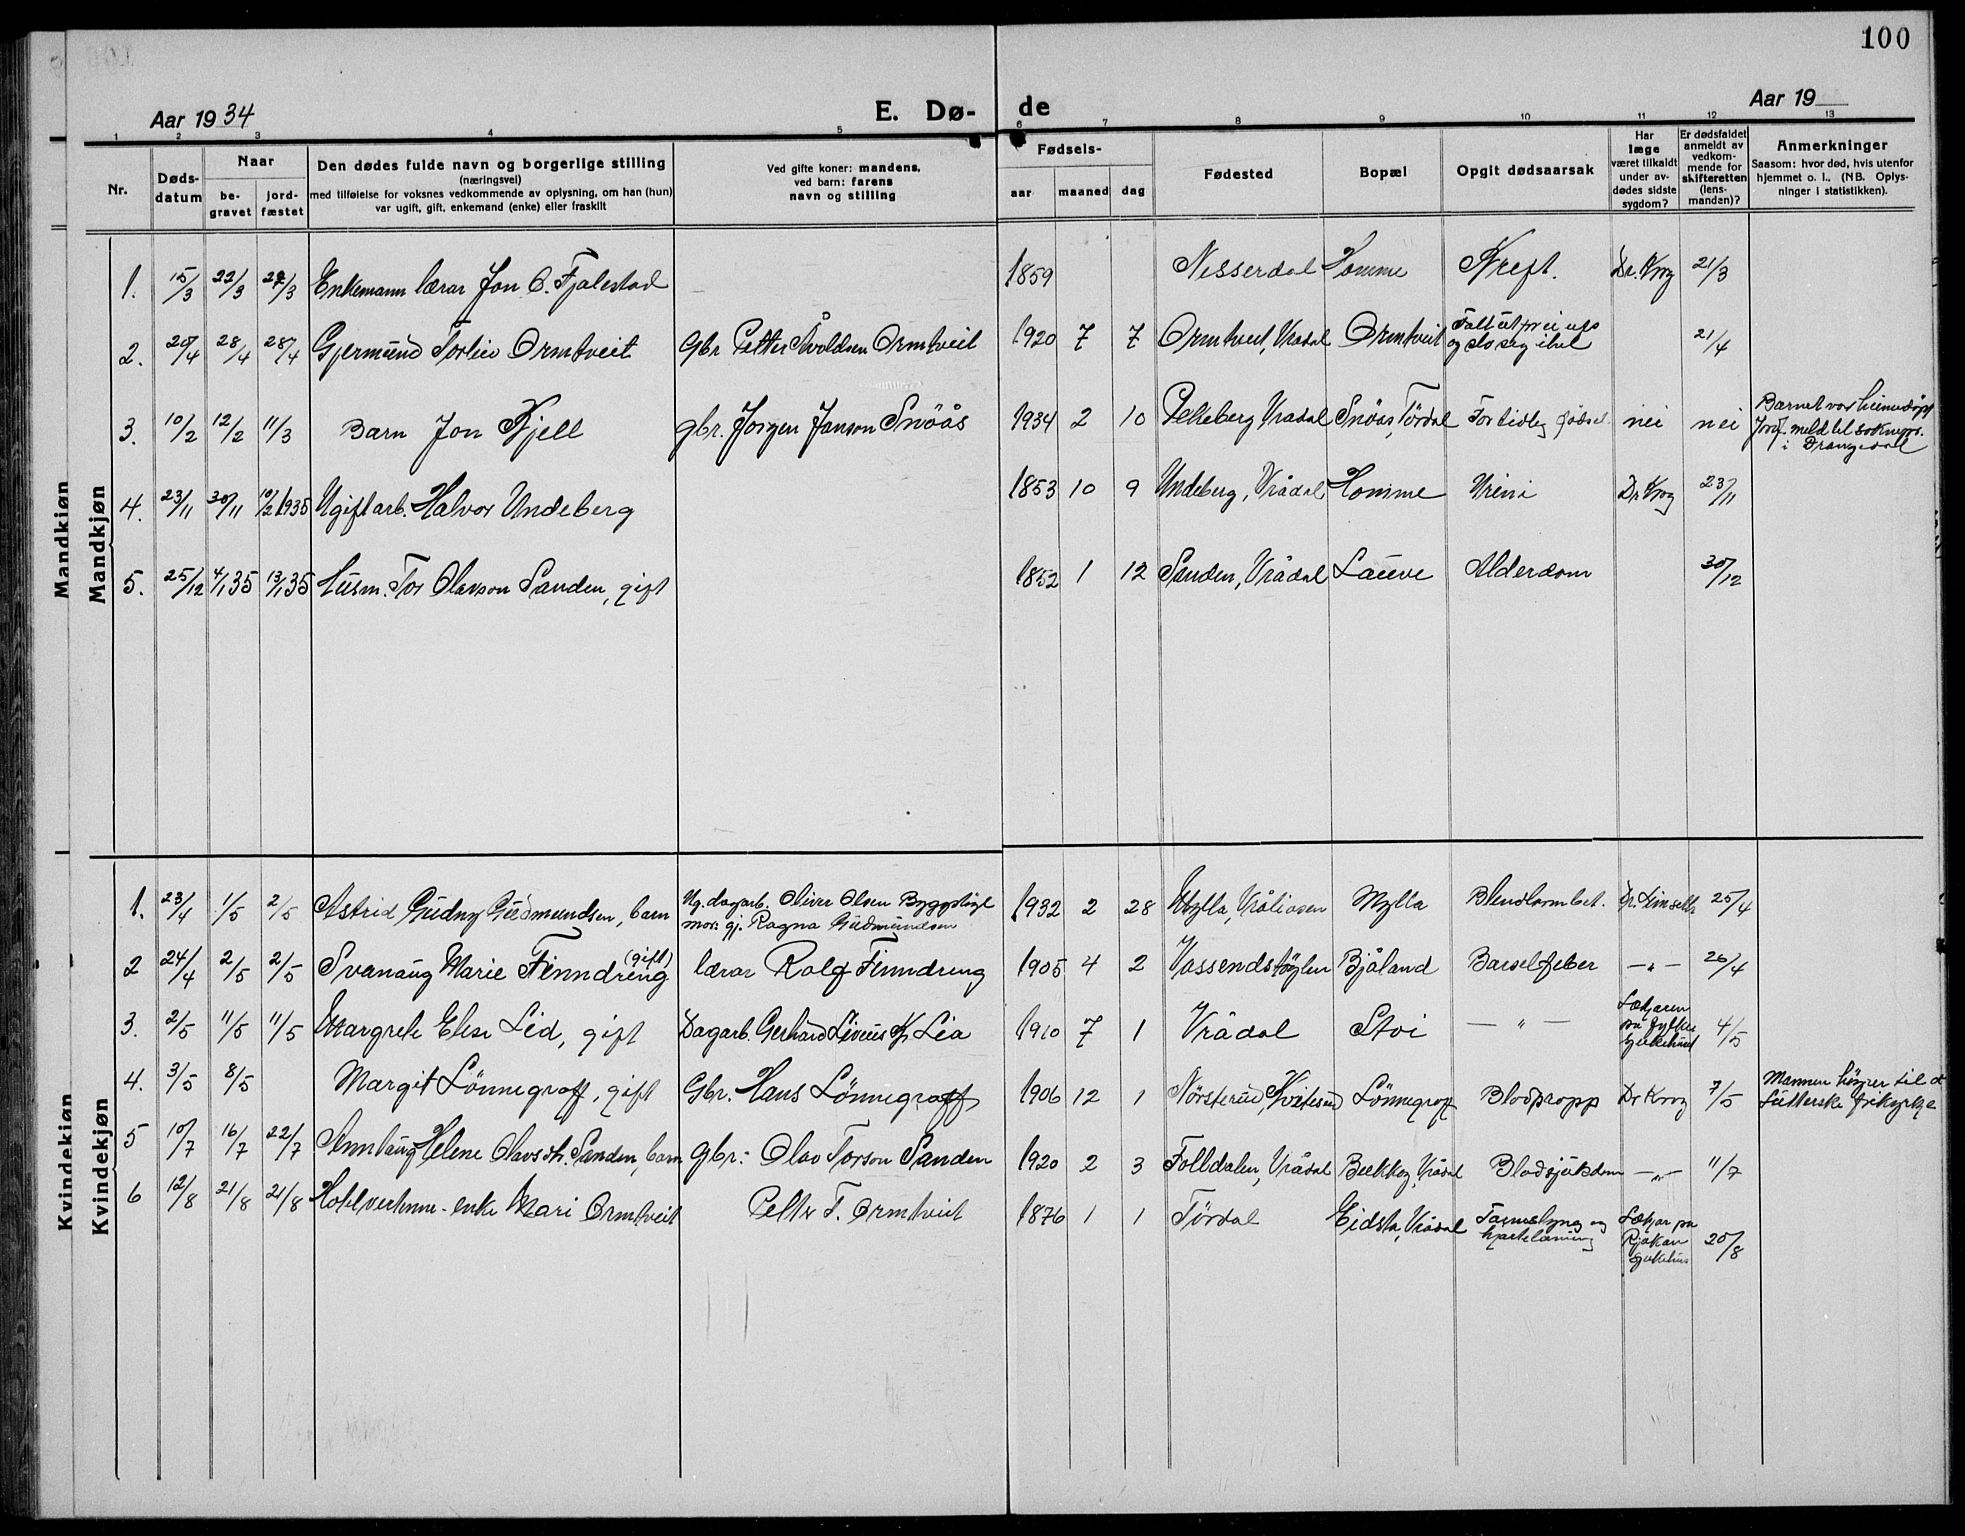 100
Aar 1934
E. Dø-
de
Aar 19
1 2 3 4 5 6 7 8 9 10 11 12 13
Nr.
Døds-
datum
Naar
be-
gravet
jord-
fæstet
Den dødes fulde navn og borgerlige stilling
(næringsvei)
med tilføielse for voksnes vedkommende av oplysning, om han (hun)
var ugift, gift, enkemand (enke) eller fraskilt
Ved gifte koner: mandens,
ved barn: farens
navn og stilling
Fødsels-
aar maaned dag
Fødested
Bopæl
Opgit dødsaarsak
Har
læge
været tilkaldt
under av-
dødes sidste
sygdom?
Er dødsfaldet
anmeldt av
vedkom-
mende for
skifteretten
(lens-
manden)?
Anmerkninger
Saasom: hvor død, hvis utenfor
hjemmet o. l., (NB. Oplys-
ninger i statistikken).
Mandkjøn
Mandkjøn
1. 15/3 22/3 /3 Enkemann lærar Jon O. Fjalestad 1859 Nisserdal Homme Kreft. Dr. Krog 21/3
2. 20/4 28/4 28/4 Gjermund Torleiv Ormtveit Gbr Petter Ormtveit 1920 7 7 Ormtveit, Vradal Ormtveit Falt ut
og slo seg ihel 21/4
3. 10/2 12/2 11/3 Barn Jon Kjell gbr. Jörgen Janson Snöås 1934 2 10 Vradal Snöås, Tördal For tidleg födsel nei nei Barnet var heimedöpt
meld til
i Drangedal
4. 23/11 30/11 10/2 1935 Ugift arb. Halvor Undeberg 1853 10 9 Undeberg, Vrådal Homme Urini Dr Krog 23/11
5. 25/12 4/1 35 13/1 35 Husm. Tor Olavson Sanden, gift 1852 1 12 Sanden, Vrådal Lauve Alderdom 30/12
Kvindekjøn
Kvindekjøn
1. 23/4 1/5 2/5 Astrid Gudny Gudmundsen, barn Ug. dagarb. Oliver Olsen
mor: gj. Ragna Gudmundsen 1932 2 28 Mylta, Vråliosen Mylta Blendtarmbet. Dr. 25/4
2 24/4 2/5 2/5 Svanaug Marie Finndreng (gift) lærar Rolf Finndreng 1905 4 2 Bjåland Barselfeber —"— 26/4
3. 2/5 11/5 11/5 Margrete Elise Lid, gift Dagarb. Gerhard Lia 1910 7 1 Vrådal Stvi —"— Lækjaren
på fylkes
sjukehuset 4/5
4. 3/5 8/5 Margit Lönnegraff, gift Gbr. Hans Lönnegraff 1906 12 1 Nørsterud, Kviteseid Lönnegraff Blodpropp Dr Krog 7/5 Mannen höyrer til d
lutterske frikyrkje
5 10/7 16/7 22/7 Annbaug Helene Olavsdtr. Sanden, barn gbr: Olav Torson Sanden 1920 2 3 Folldalen, Vrådal Bekkhog, Vrådal Blodsjukdom —"— 11/7
6 12/8 21/8 21/8 enke Mari Ormtveit Petter T. Ormtveit 1876 1 1 Tördal Eidsta, Vrådal Tarmslyng og
hjartelaming Lækjar på
Rjukan
sjukehus 20/8